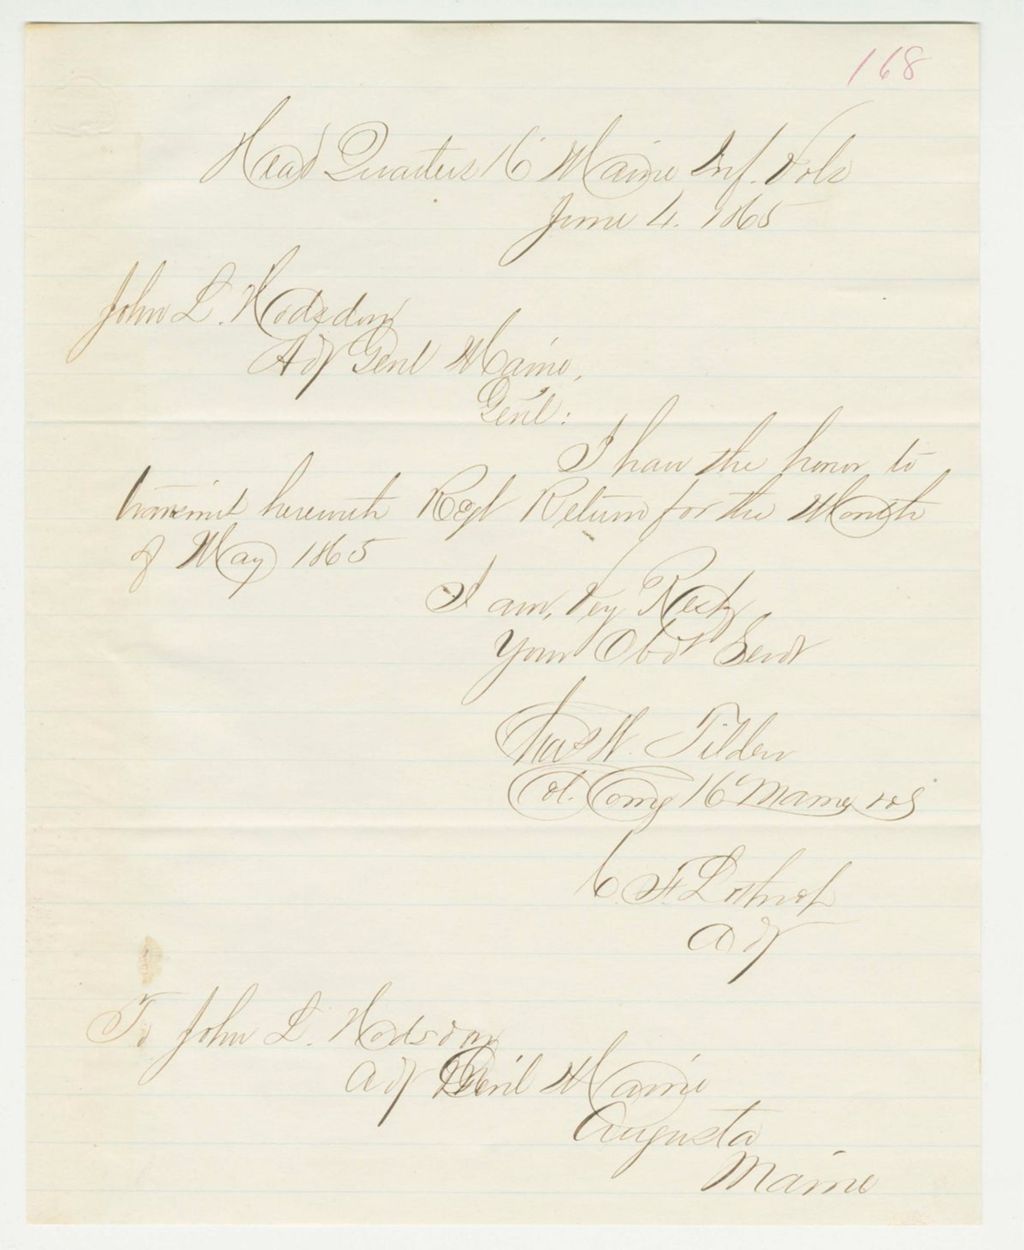 168
Head Quarters 16' Maine Inf. Vols
June 4. 1865
John L. Hodsdon
Adjt Genl Maine,
Genl:
I have the honor to
transmit herewith Regt Return for the Month
of May 1865
I am, Very Resty,
Your Obdt Servt
Chas W. Tilden
Col. Comg 16' Maine Vols
C F Lothrop
Adjt
To John L. Hodsdon
Adjt Genl Maine
Augusta
Maine